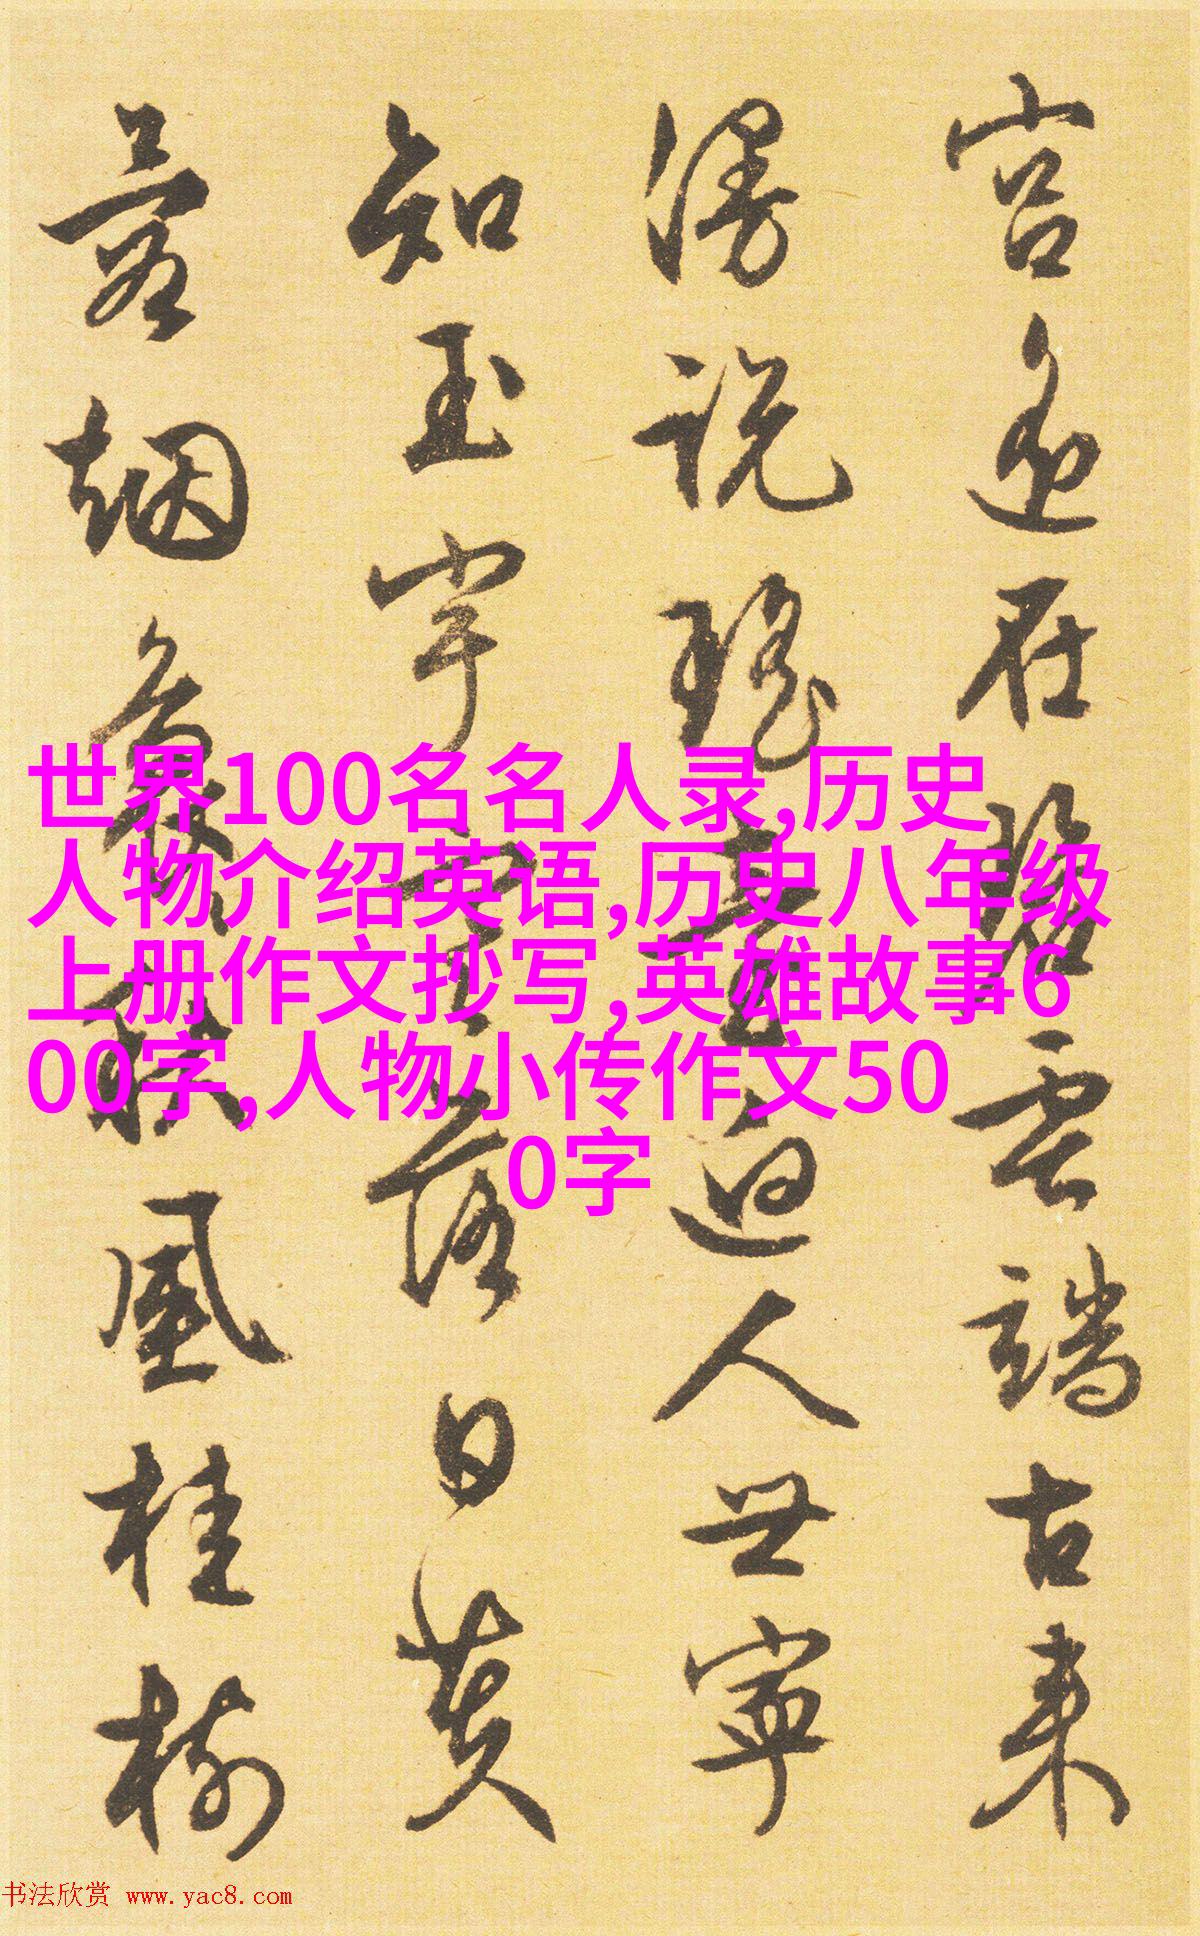 宫在碧雲端古來
漫說瑶臺迥人世寧
知玉宇落日黄
烟秋風桂樹
世界100名名人录,历史
人物介绍英语,历史八年级
上册作文抄写,英雄故事6
00字,人物小传作文50
0字
书法欣赏 www.yac8.com